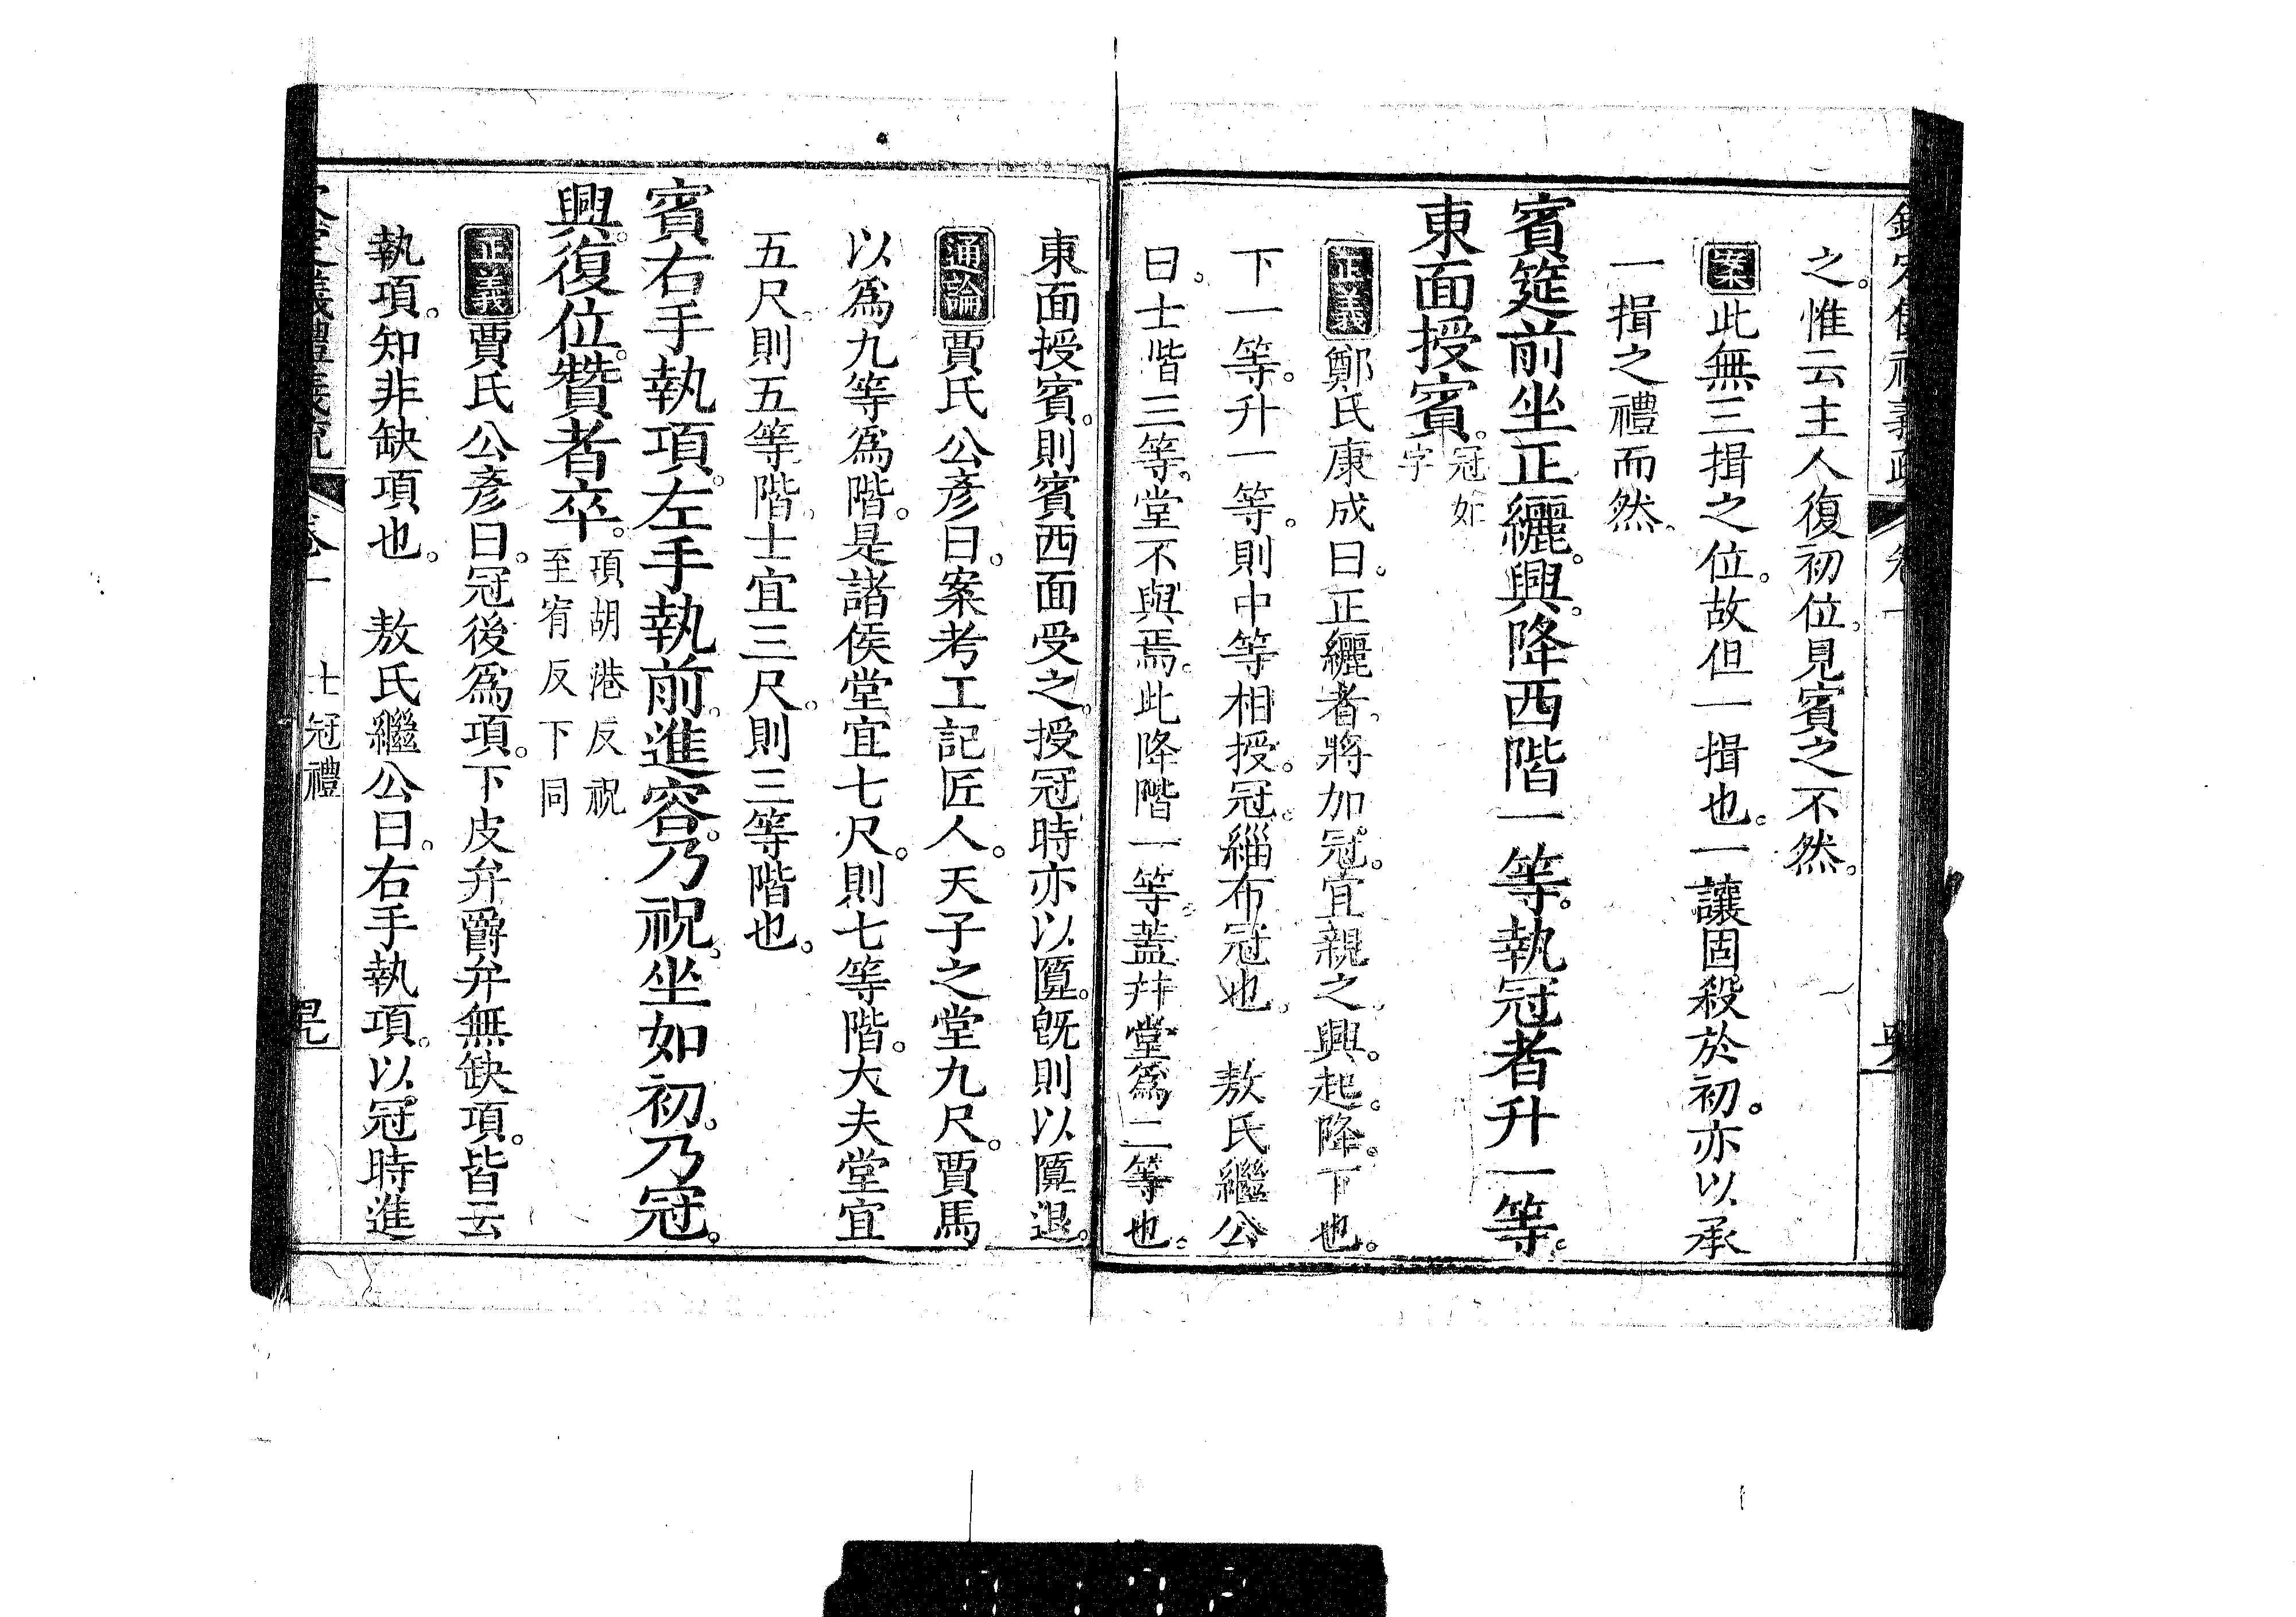 之。惟云主人復初位。見賓之不然。
案此無三揖之位。故但一揖也。一讓固殺於初。亦以承
一揖之禮而然。
賓筵前坐正纚。興。降西階一等。執冠者升一等。
東面授賓。冠如字
正義鄭氏康成曰。正纚者。將加冠。宜親之。興。起。降。下也。
下一等。升一等。則中等相授。冠。緇布冠也。 敖氏繼公
曰。士階三等。堂不與焉。此降階一等。蓋幷堂爲二等也。
東面授賓。則賓西面受之。授冠時亦以匴。旣則以匴退。
通論賈氏公彥曰。案考工記匠人。天子之堂九尺。賈馬
以爲九等爲階。是諸侯堂宜七尺。則七等階。大夫堂宜
五尺。則五等階。士宜三尺。則三等階也。
賓右手執項。左手執前。進容。乃祝。坐如初。乃冠。
興。復位。贊者卒。項胡港反祝至宥反下同
正義賈氏公彥曰。冠後爲項。下皮弁爵弁無缺項。皆云
執項。知非缺項也。 敖氏繼公曰。右手執項。以冠時進
義禮義疏 卷一 士冠禮